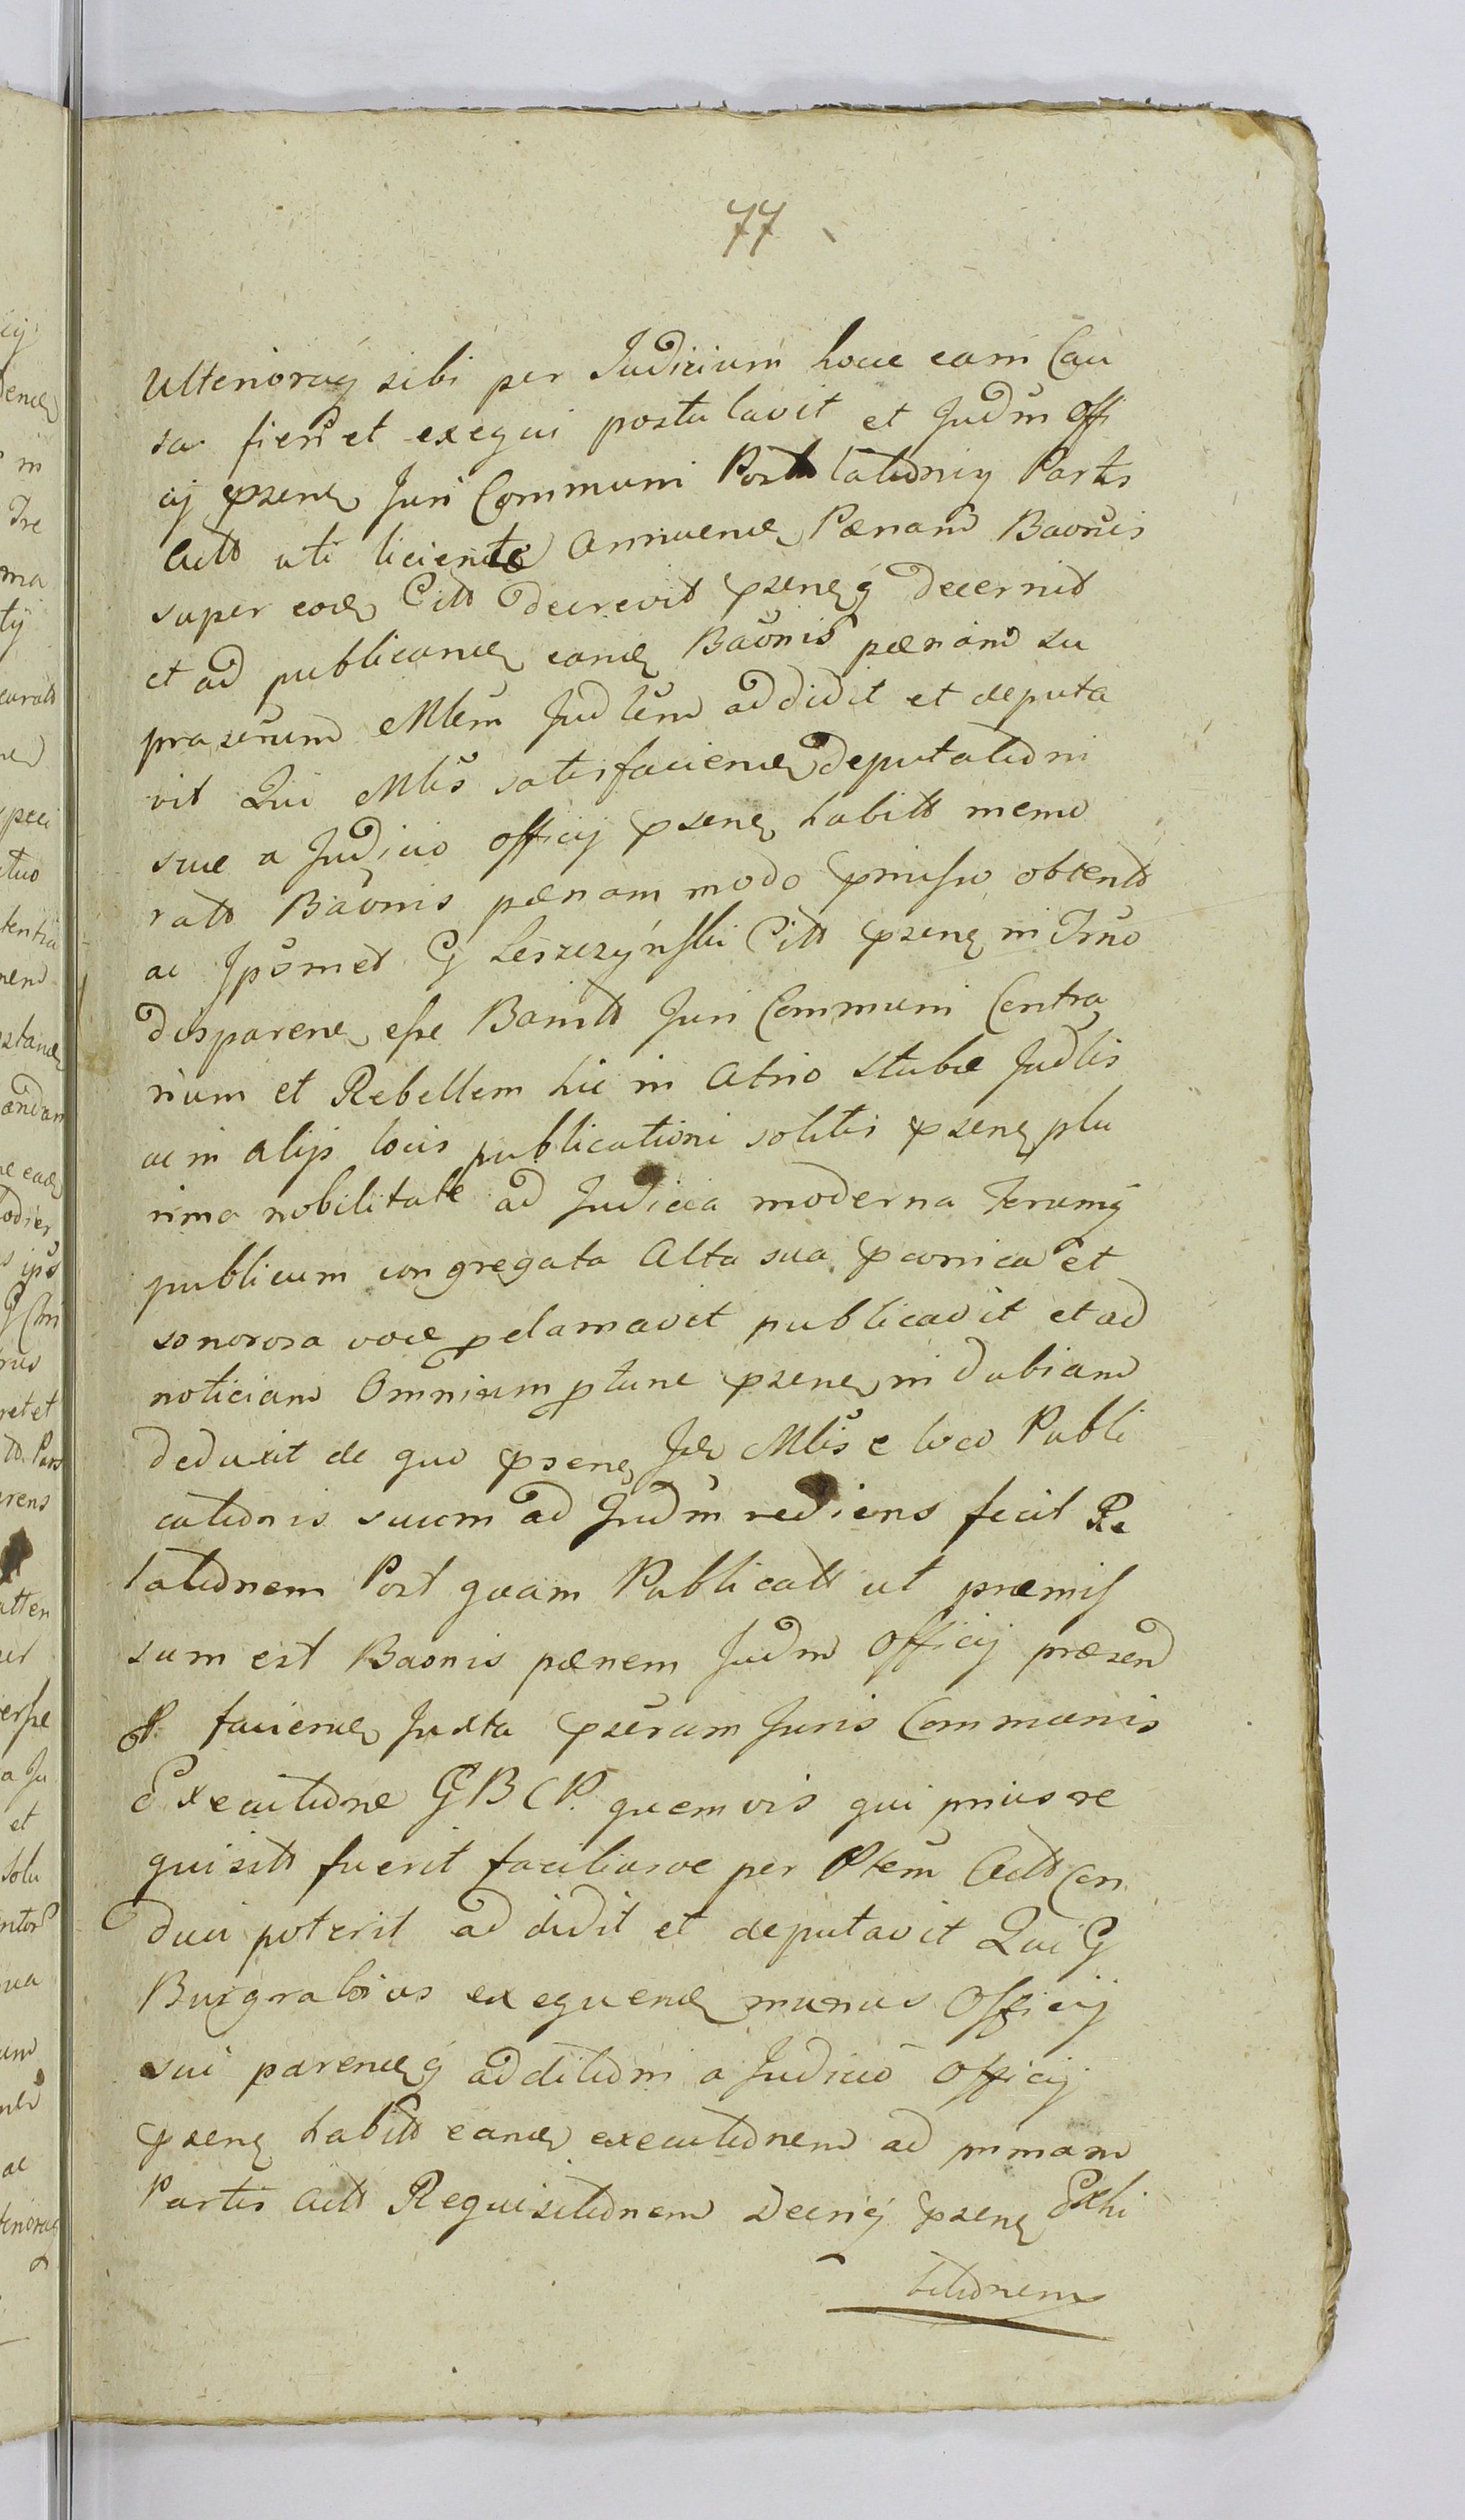 77
Ulterioraq sibi per Judicium hocce eam Cau
sa fieri et exequi postulavit et Judm Offi
cij psens Juri Communi Postulationiq Partis
Actt uti licientae Annuend Pænam Baonis
super eod Citt decrevit psensq decernit
et ad publicand eand Baonis pænam su
prasrium Mlem Judlem addidit et deputa
vit Qui Mlis satisfaciend deputationi
suæ a Judicio officij psens habitt memo
ratt Baonis pænam modo pmisso obtentt
ac Ipsmet G Leszczynski Citt psens in Trno
disparen esse Banitt Juri Communi Contra
rium et Rebellem hic in Atrio Stubæ Judlis
ac in alijs locis publicationi solitis psens plu
rima nobilitate ad Judicia moderna Terrumq
publicum congregata Alta sua pconica et
sonorosa voce pclamavit publicavit et ad
noticiam Omnium ptunc psens indubiam
deduxit de quo psens Id Mlis e loco Publi
cationis suum ad Judm rediens fecit Re
lationem Post quam Publicatt ut præmis
sum est Baonis pænem Judm Officij præsen
P. faciend Juxta psrum Juris Communis
Executione G B C P. quemvis qui prius re
quisitt fuerit faciliusve per Ptem Actt Con
duci poterit addidit et deputavit Qui G
Burgrabius exequend munus Officij
sui parendq additioni a Judicio Officij
psens habitt eand executionem ad primam
Partis Actt Requisitionem Decriq psens Exhi
bitionem